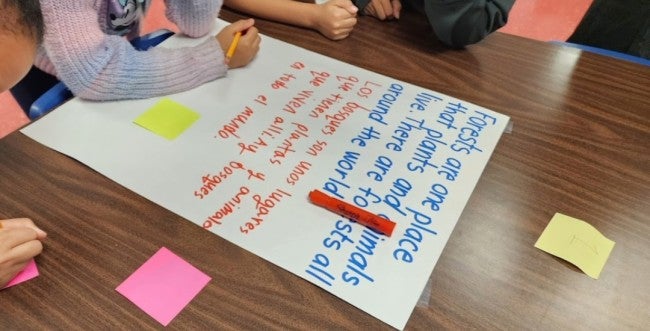 Forests are one place
that plants and animals
live. There are forests all
around the world.
Los bosques son unos lugares
que tienen plantas y animales
que viven allí. Ay bosques
en todo el mundo.